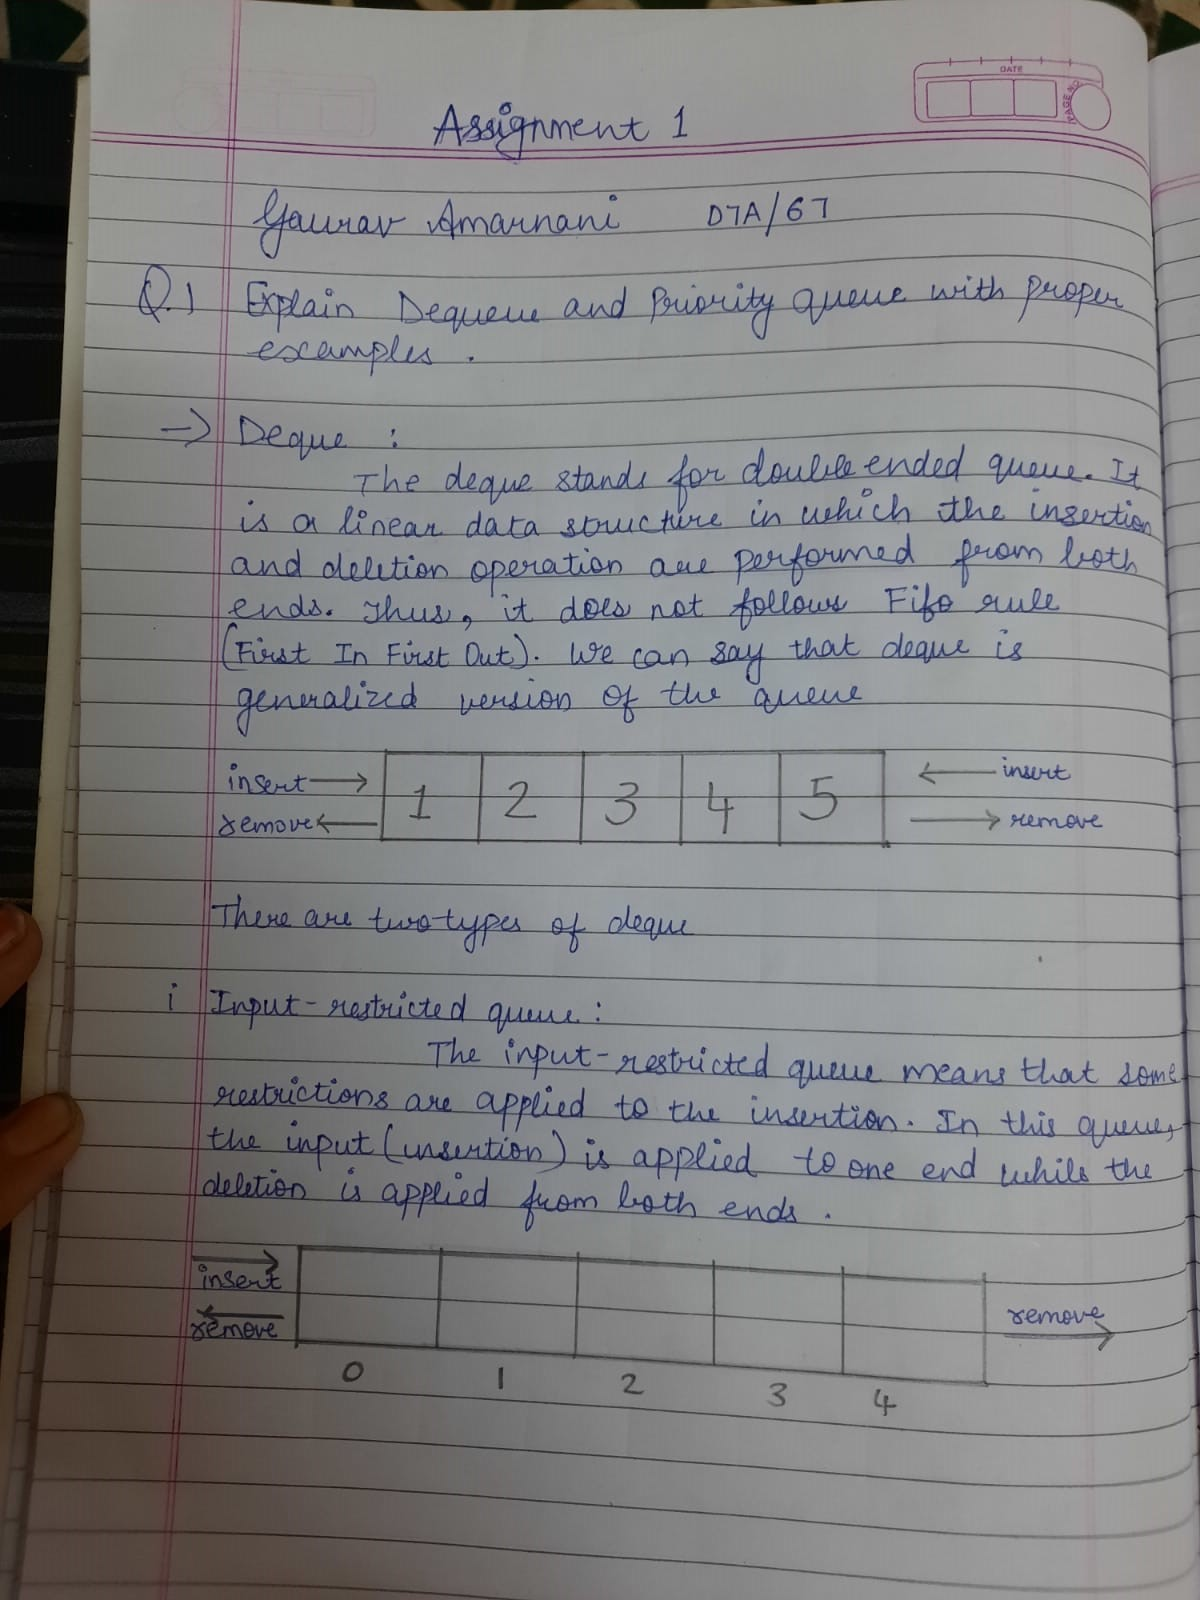 DATE
PAGE NO.
Assignment 1
Gaurav Amarnani D7A/67
Q.1 Explain Dequeue and Priority queue with proper
examples.
→ Deque :
The deque stands for double ended queue. It
is a linear data structure in which the insertion
and deletion operation are performed from both
ends. Thus, it does not follows Fifo rule
(First In First Out). We can say that deque is
generalized version of the queue
insert → 1 2 3 4 5 ← insert
remove ← → remove
There are two types of deque
i Input-restricted queue :
The input-restricted queue means that some
restrictions are applied to the insertion. In this queue,
the input (insertion) is applied to one end while the
deletion is applied from both ends.
insert
remove remove
0 1 2 3 4